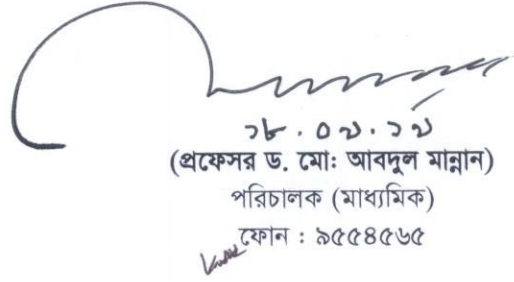 ১৮.০৯.১৯
(প্রফেসর ড. মো: আবদুল মান্নান)
পরিচালক (মাধ্যমিক)
ফোন : ৯৫৫৪৫৬৫